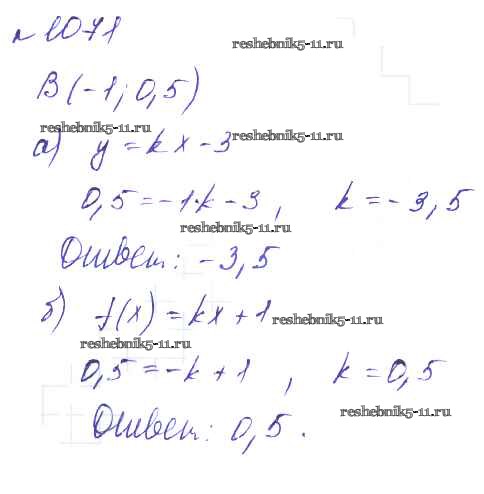 №1071
reshebnik5-11.ru
B(-1; 0,5)
reshebnik5-11.ru
reshebnik5-11.ru
а) y = kx - 3
0,5 = -1·k - 3, k = -3,5
reshebnik5-11.ru
Ответ: -3,5
б) f(x) = kx + 1
reshebnik5-11.ru
reshebnik5-11.ru
0,5 = -k + 1, k = 0,5
reshebnik5-11.ru
Ответ: 0,5.